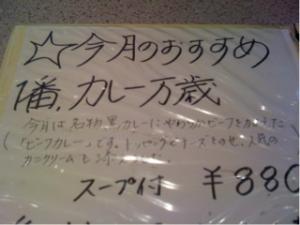 ☆今月のおすすめ
1番.カレー万歳
今月は名物黒カレーにやわらかビーフを
「ビーフカレー」です。トッピングにチーズをのせ、人気の
カニクリームも
スープ付 ¥880